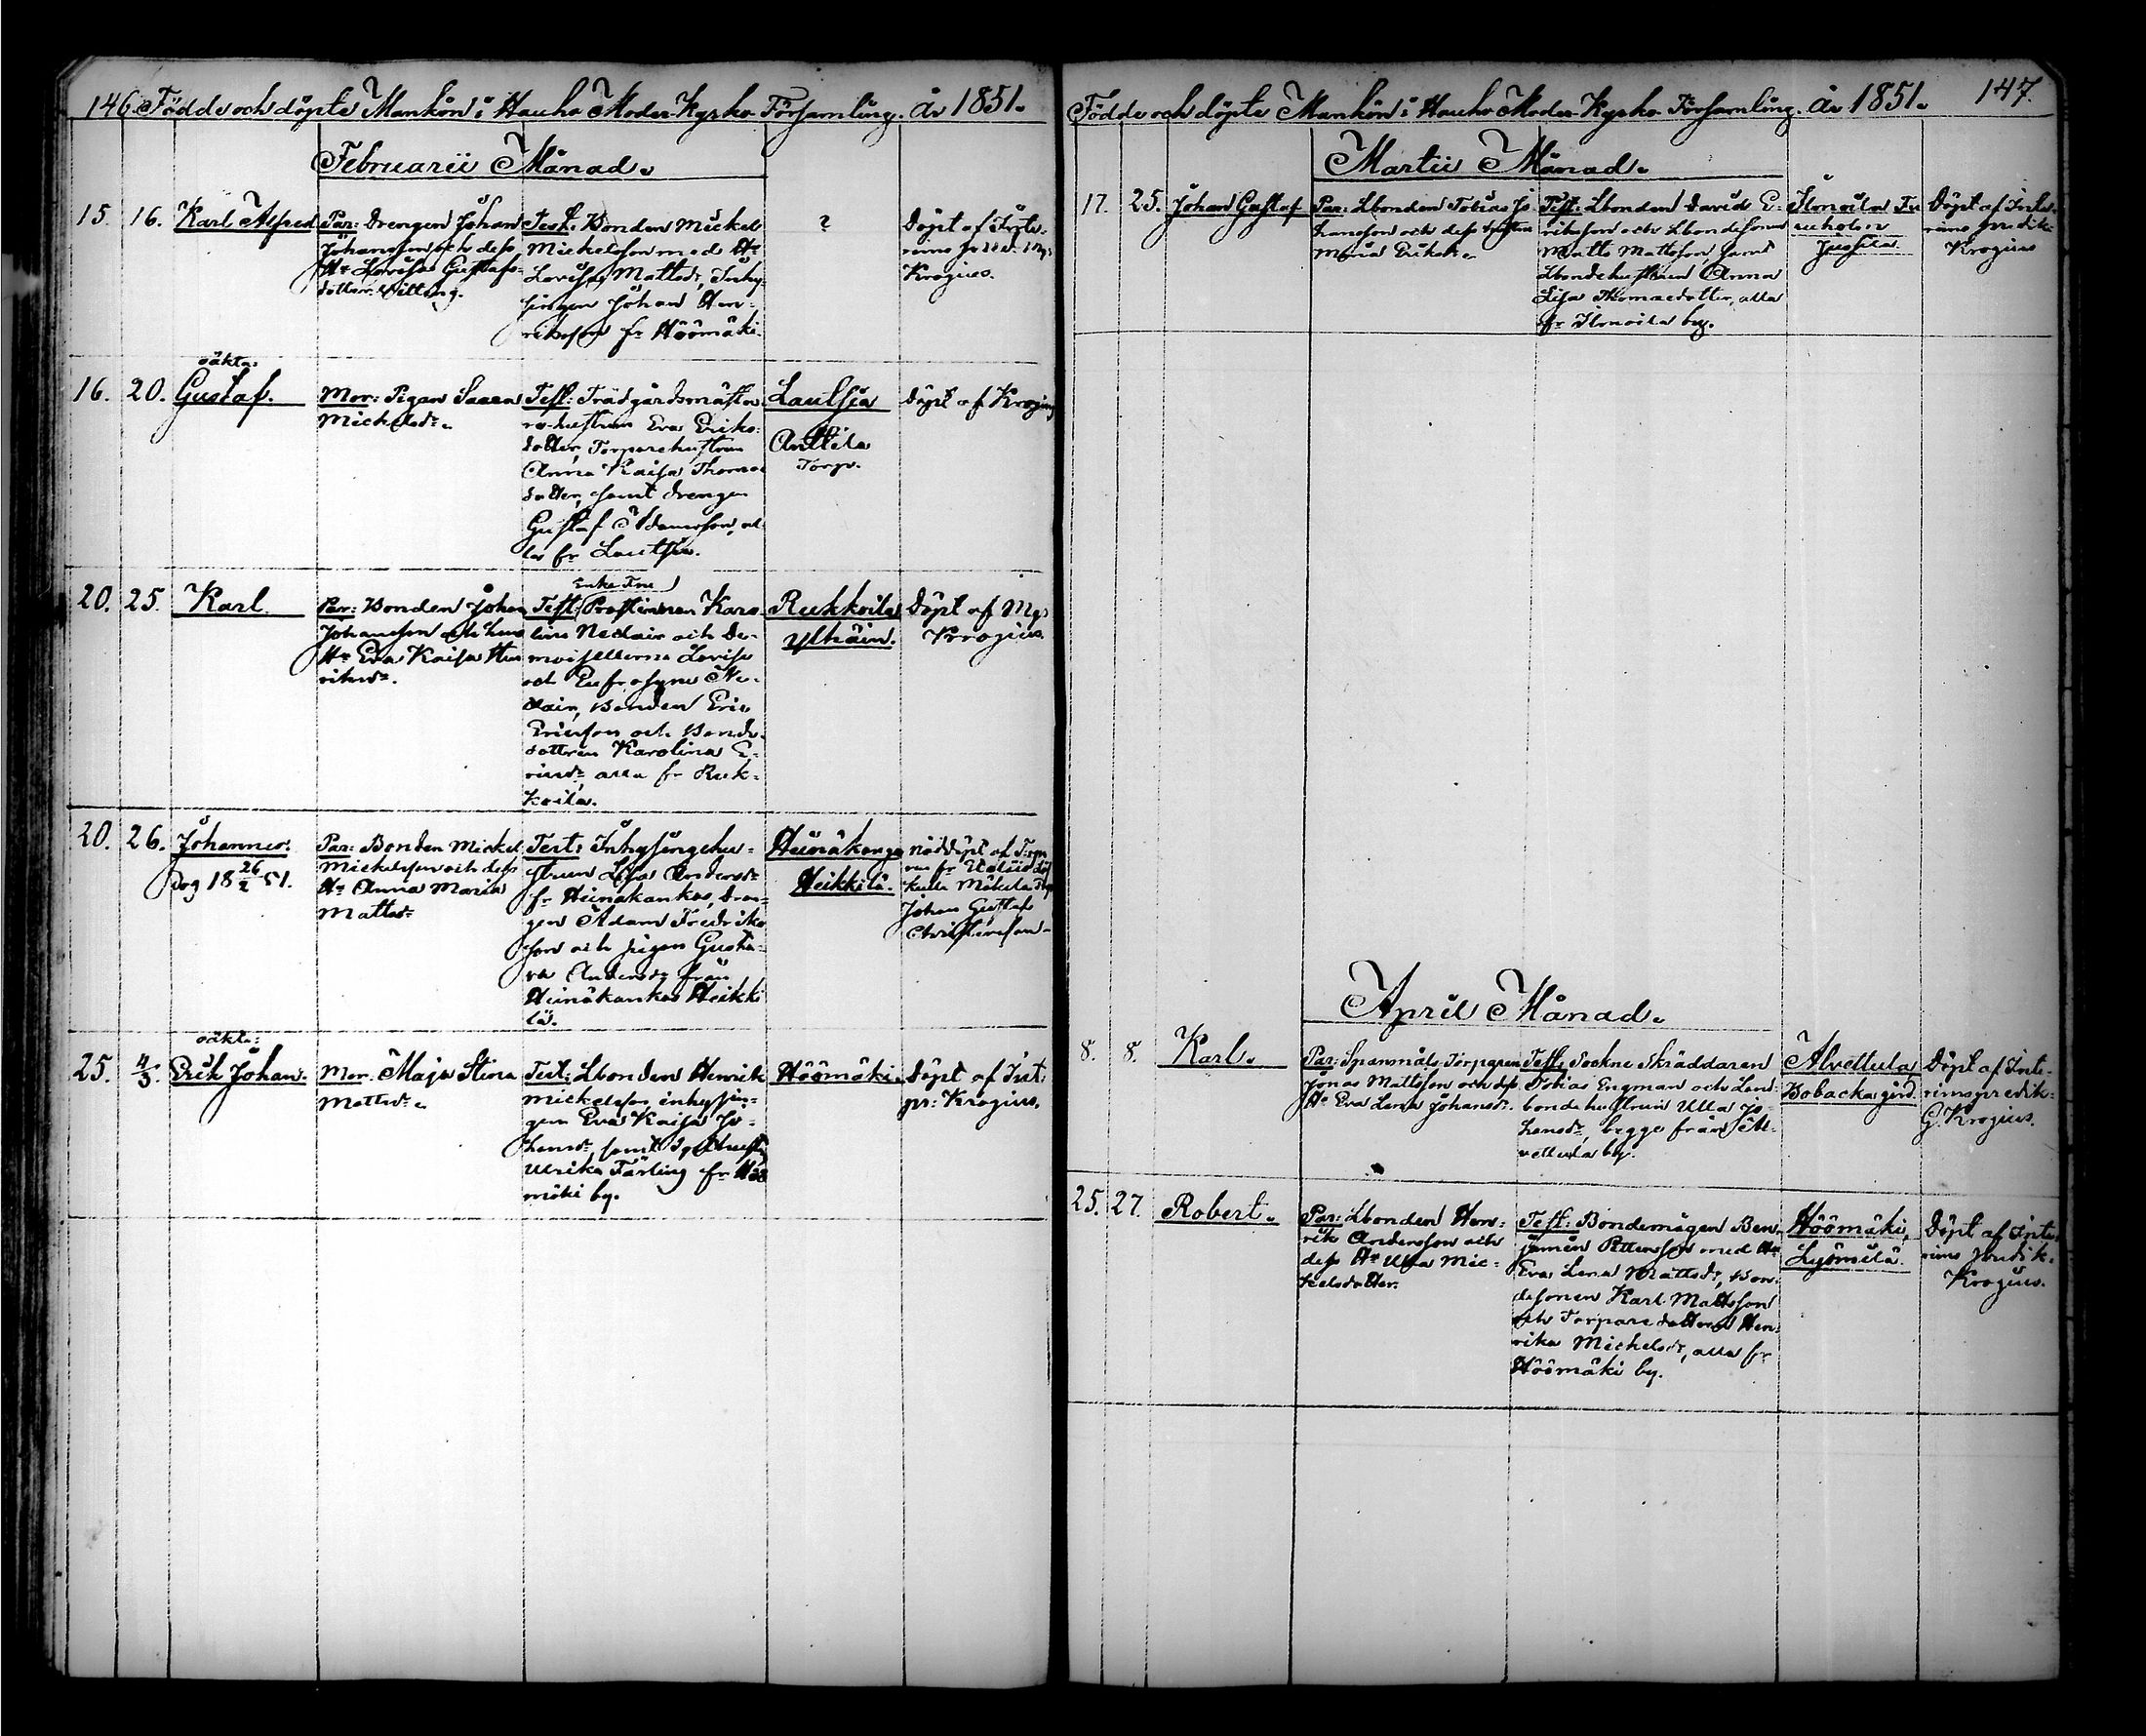 146. Födde och döpte Mankön i Hauho Moder Kyrko Församling. År 1851.
Februarii Månad.
15. 16. Karl Alfred
Par: Drengen Johan
Johansson och dess
Hu Lovisa Gustafs-
dotter
Test: Bonden Mickel
Mickelsson med Hu
Lovisa Mattsdr, Inhy-
singen Johan Hen-
riksson fr Höömäki.
?
Döpt af Inte-
rims
Krogius.
oäkta:
16. 20. Gustaf.
Mor: Pigan
Mickelsdr.
Test: Trädgårdsmästa-
re-hustrun Eva Eriks-
dotter, Torparehustrun
Anna Kaisa Thomas
dotter, samt drengen
Gustaf Adamsson, al-
la fr Lautsia.
Lautsia
Anttila
Torp.
Döpt af Krogius
20. 25. Karl.
Par: Bonden Johan
Johansson och hans
Hu Eva Kaisa Hen
riksdr.
Enke Fru
Test: Prostinnan Karo
lina Neclair och De-
moisellerna Lovisa
och Eufrosyne Ne-
clair, Bonden Eric
Ericsson och Bonde-
dottren Karolina E-
ricsdr, alla fr Ruk-
koila.
Rukkoila
Ylhäin.
Döpt af Mag
Krogius.
20. 26. Johannes.
Dog 18 26/2 51.
Par: Bonden Mickel
Mickelsson och dess
Hu Anna Maria
Mattsdr
Test: Inhysingehu-
strun Lisa Andersdr
fr Heinäkankas, Dren-
gen Adam Fredriks
son och pigan Gusta-
va Andersdr från
Heinäkankas Heikki
lä.
Heinäkangas
Heikkilä.
Nöddöpt af
Johan Gustaf
Christersson
oäkta:
25. 4/3. Erik Johan.
Mor: Maja Stina
Mattsdr.
Test: Lbonden Henrik
Mickelsson, inhysin-
gen Eva Kaisa Jo-
hansdr, samt
Ulrika Färling fr Höö
mäki by.
Höömäki.
Döpt af Int:
pr: Krogius.
Födde och döpte Mankön i Hauho Moder Kyrko Församling. År 1851. 147.
Martii Månad.
17. 25. Johan Gustaf
Par: Lbonden Tobias Jo
hansson och dess hustru
Maria Eriksdr.
Test: Lbonden David E-
riksson och Lbondesonen
Matts Mattsson, samt
Lbondehustrun Anna
Lisa Thomasdotter, alla
fr Ilmoila by.
Ilmoila
Jussila.
Döpt af Inte-
rims predik:
Krogius
April Månad.
8. 8. Karl.
Par: Spanmåls Torparen
Jonas Mattsson och dess
Hu Eva Lena Johansdr.
Test: Sockne Skräddaren
Tobias Engman och Land-
bonde hustrun Ulla Jo-
hansdr, begge från Al-
vettula by.
Alvettula
Bobacka gård.
Döpt af Inte-
rimspredik:
G. Krogius.
25. 27. Robert.
Par: Lbonden Hen-
rik Andersson och
dess Hu Ulla Mic-
kelsdotter.
Test: Bondemågen Ben-
jamin Pettersson med Hu
Eva Lena Mattsdr, Bon-
desonen Karl Mattsson
och Torparedottren Hen-
rika Michelsdr, alla fr
Höömäki by.
Höömäki,
Lyömilä.
Döpt af Inte-
rims predik:
Krogius.